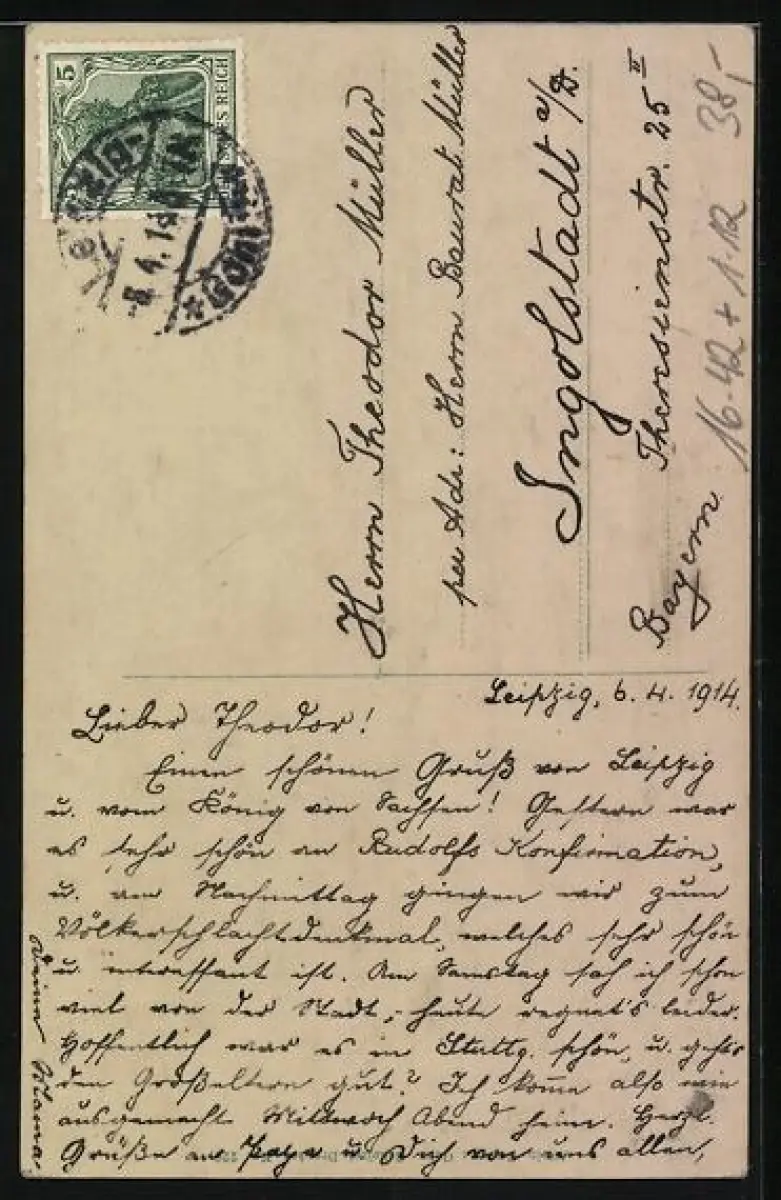 5
DEUTSCHES REICH
6.4.14
Herrn Theodor Müller
per Adr: Herrn Baurat Müller
Ingolstadt a/D.
Theresienstr. 25 II
Bayern
16.42 + 1.12 38,-
Leipzig, 6.4.1914.
Lieber Theodor!
Einen schönen Gruß von Leipzig
u. vom König von Sachsen! Gestern war
es sehr schön an Rudolfs Konfirmation,
u. am Nachmittag gingen wir zum
Völkerschlachtdenkmal, welches sehr schön
u. interessant ist. Am Samstag sah ich schon
viel von der Stadt, heute regnet's leider.
Hoffentlich war es in Stuttg. schön, u. geht's
den Großeltern gut? Ich komme also wie
ausgemacht Mittwoch Abend heim. Herzl.
Grüße an Papa u. Dich von uns allen,
Deine Mama